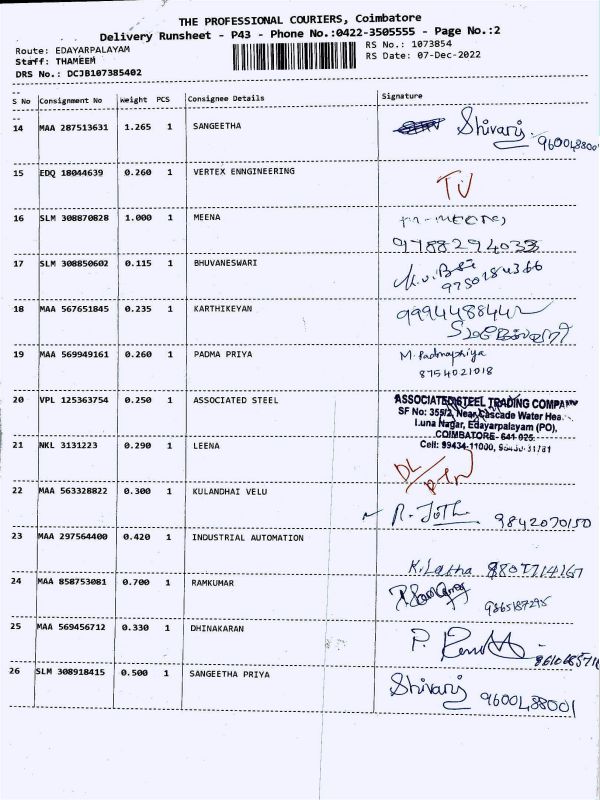 THE PROFESSIONAL COURIERS, Coimbatore
Delivery Runsheet - P43 - Phone No.:0422-3505555 - Page No.:2
Route: EDAYARPALAYAM
RS No.: 1073854
Staff: THAMEEM
RS Date: 07-Dec-2022
DRS No.: DCJB107385402
S No Consignment No Weight PCS Consignee Details Signature
14 MAA 287513631 1.265 1 SANGEETHA Shivani
15 EDQ 18044639 0.260 1 VERTEX ENNGINEERING
16 SLM 308870828 1.000 1 MEENA
9788294033
17 SLM 308850602 0.115 1 BHUVANESWARI
9750184366
18 MAA 567651845 0.235 1 KARTHIKEYAN
19 MAA 569949161 0.260 1 PADMA PRIYA M. Padmapriya
8754021018
20 VPL 125363754 0.250 1 ASSOCIATED STEEL ASSOCIATED STEEL TRADING COMPANY
SF No: 355/2, Near Cascade Water Hea
Luna Nagar, Edayarpalayam (PO),
COIMBATORE- 641 025.
21 NKL 3131223 0.290 1 LEENA Cell: 99434-11000,
DL
22 MAA 563328822 0.300 1 KULANDHAI VELU
9842070150
23 MAA 297564400 0.420 1 INDUSTRIAL AUTOMATION
K. Latha
24 MAA 858753081 0.700 1 RAMKUMAR
9865187295
25 MAA 569456712 0.330 1 DHINAKARAN P.
26 SLM 308918415 0.500 1 SANGEETHA PRIYA Shivani
9600488001